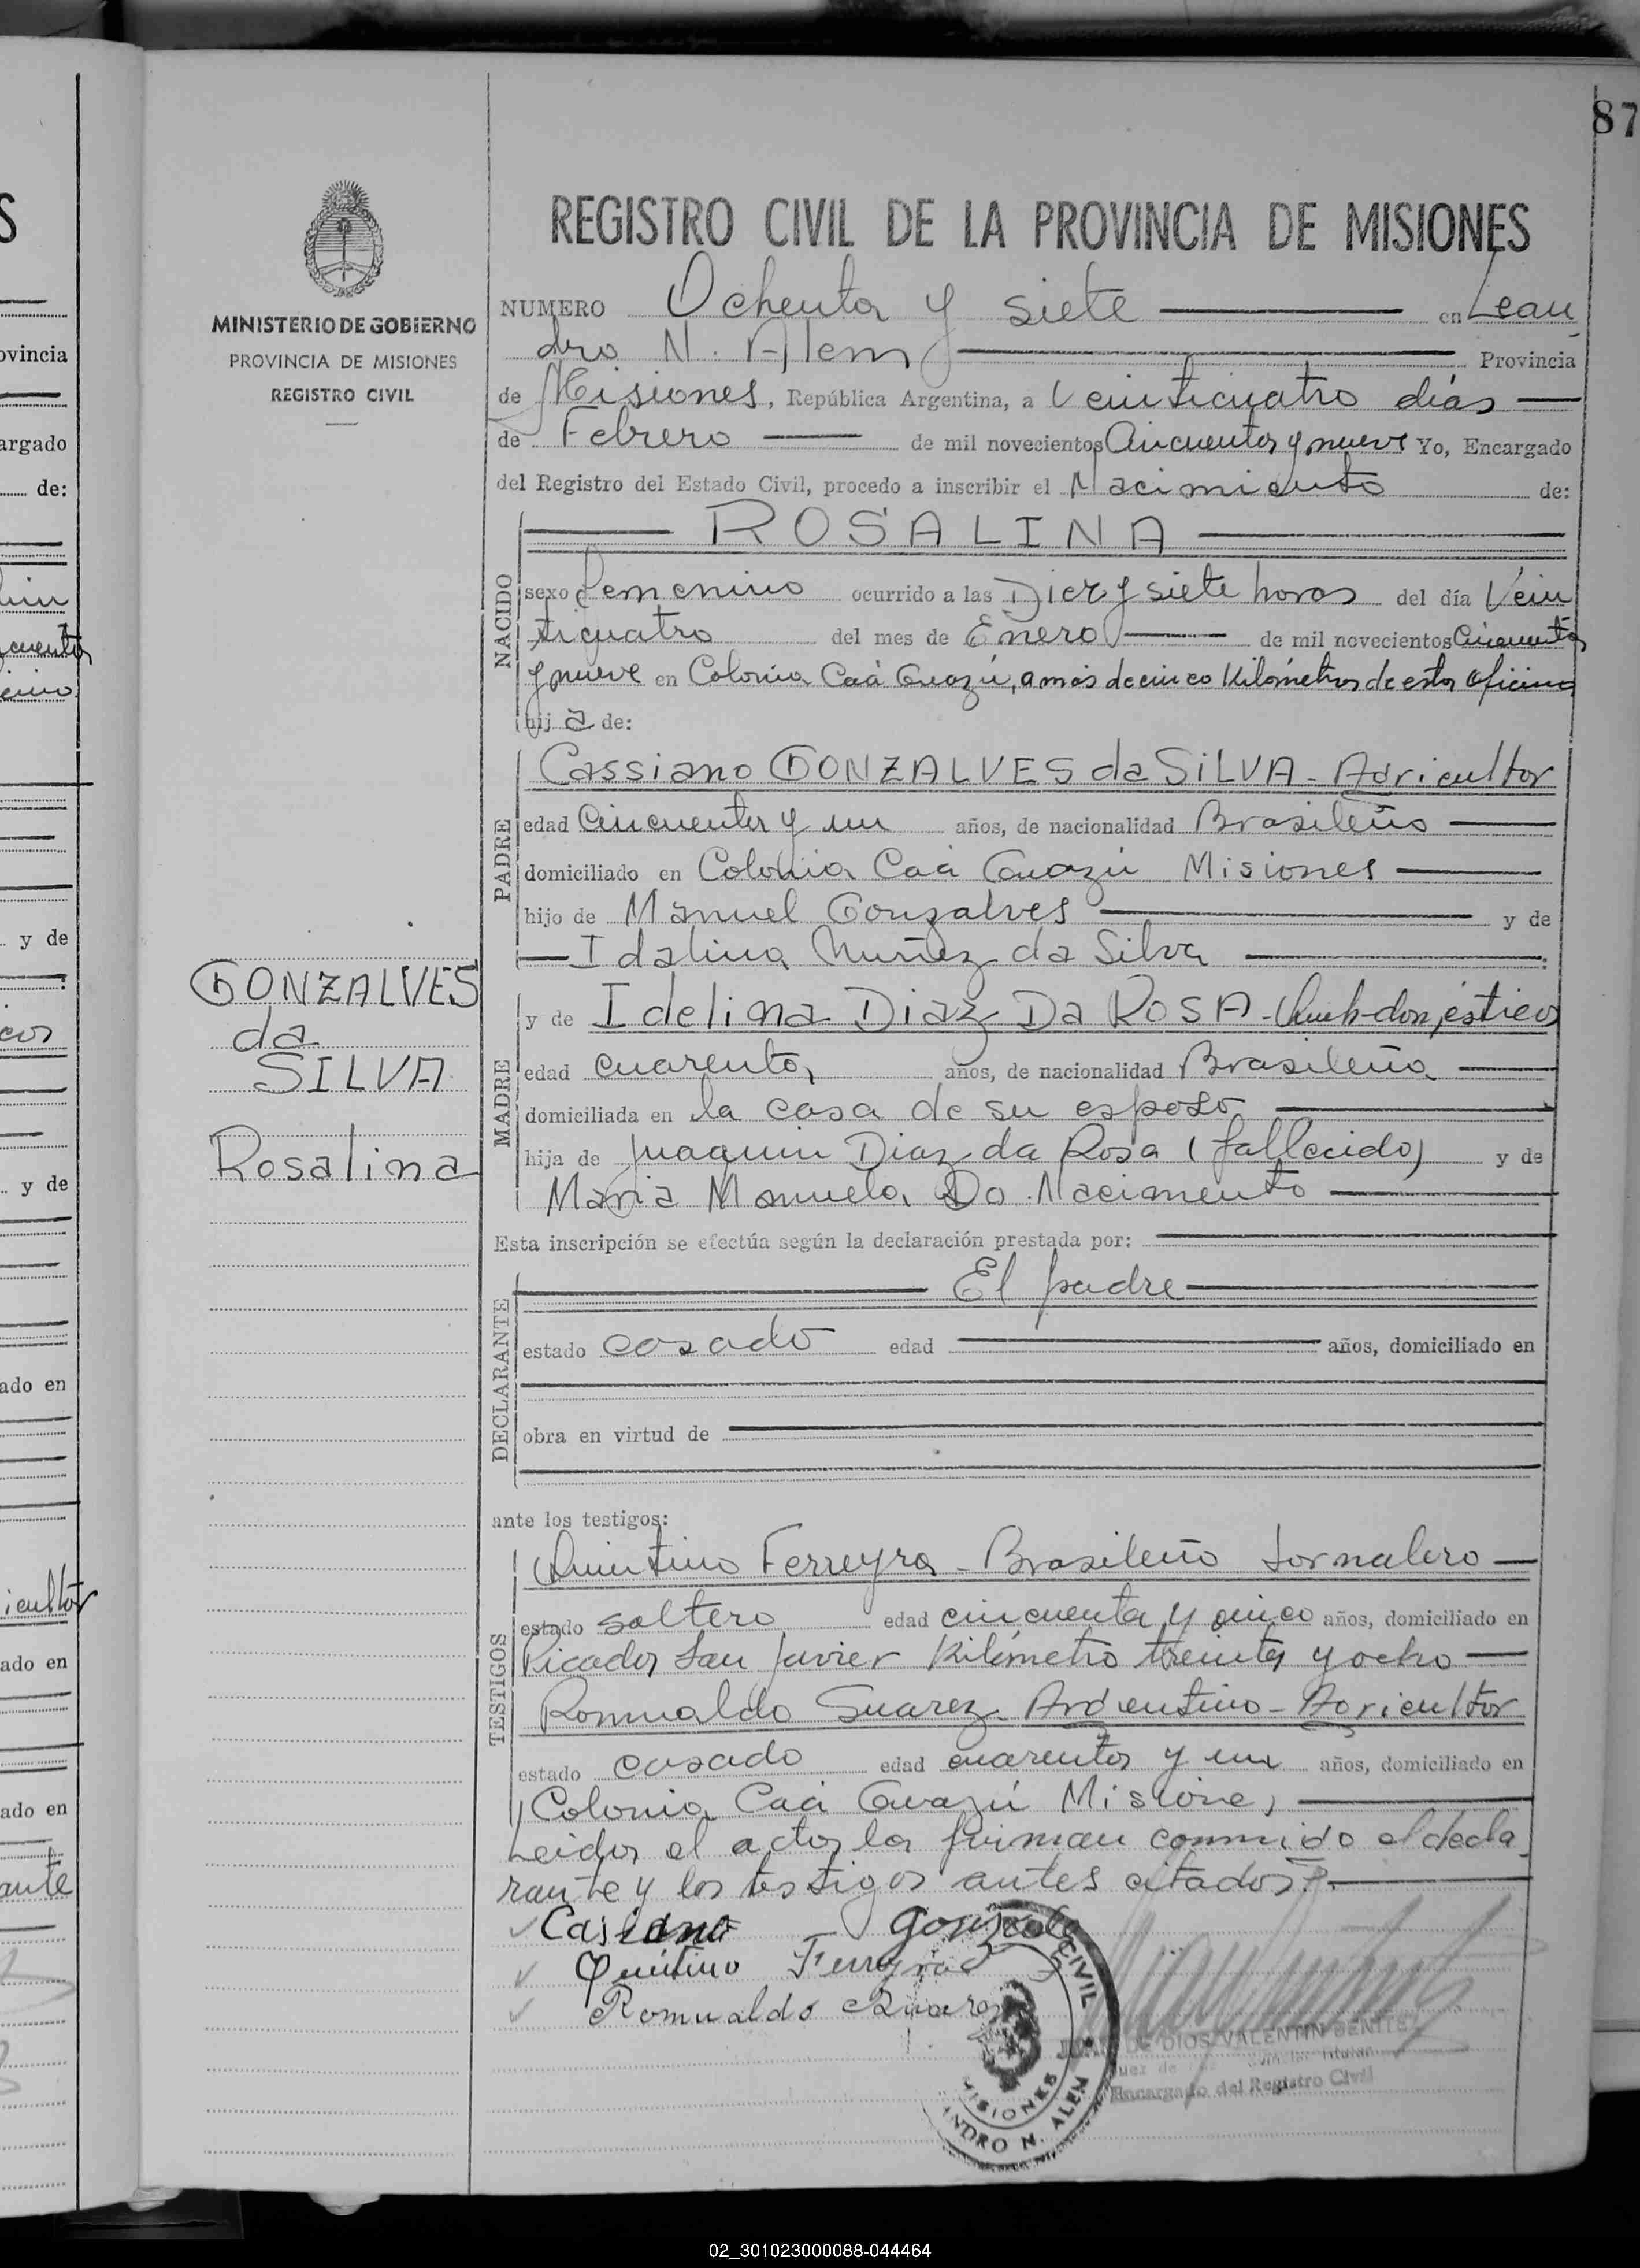 87
REGISTRO CIVIL DE LA PROVINCIA DE MISIONES
MINISTERIO DE GOBIERNO
PROVINCIA DE MISIONES
REGISTRO CIVIL
NUMERO Ochenta y siete en Lean
dro N. Alem Provincia
de Misiones, República Argentina, a Veinticuatro días
de Febrero de mil novecientos Cincuenta y nueve Yo, Encargado
del Registro del Estado Civil, procedo a inscribir el Nacimiento de:
NACIDO
ROSALINA
sexo femenino ocurrido a las Diez y siete horas del día Vein
ticuatro del mes de Enero de mil novecientos Cincuenta
y nueve en Colonia Caá Guazú, a más de cinco Kilómetros de esta oficina
hij a de:
PADRE
Cassiano GONZALVES da SILVA - Agricultor
edad Cincuenta y un años, de nacionalidad Brasileño
domiciliado en Colonia Caá Guazú Misiones
hijo de Manuel Gonzalves y de
Idalina Nuñez da Silva
GONZALVES
da
SILVA
Rosalina
MADRE
y de Idelina Diaz Da ROSA - domésticos
edad cuarenta años, de nacionalidad Brasileña
domiciliada en la casa de su esposo
hija de Juaquin Diaz da Rosa (fallecido) y de
Maria Manuela Do Nacimento
Esta inscripción se efectúa según la declaración prestada por:
DECLARANTE
El padre
estado casado edad años, domiciliado en
obra en virtud de
ante los testigos:
TESTIGOS
Quintino Ferreyra - Brasileño Jornalero
estado soltero edad cincuenta y cinco años, domiciliado en
Picada San Javier Kilómetro treinta y ocho
Romualdo Suarez - Argentino - Agricultor
estado casado edad cuarenta y un años, domiciliado en
Colonia Caá Guazú Misiones
Leida el acta la firman conmigo el decla
rante y los testigos antes citados.
Casiano Gonzale
Quintino Ferreyra
Romualdo Suarez
CIVIL
MISIONES
ANDRO N. ALEM
JUAN DE DIOS VALENTIN BENITEZ
Juez de
Encargado del Registro Civil
S
ovincia
argado
de:
cuenta
y de
y de
ado en
icultor
ado en
ado en
ante
02_301023000088-044464